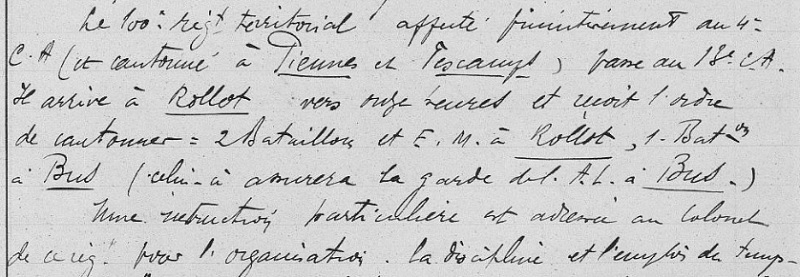 Le 100e régt territorial affecté primitivement au 4e
C.A (et cantonné à Piennes et Fescamps) passe au 13e C.A.
Il arrive à Rollot vers onze heures et reçoit l'ordre
de cantonner = 2 Bataillons et E. M. à Rollot, 1 Baton
à Bus (celui-à assurera la garde del. A.L. à Bus.)
Une instruction particulière est adressée au Colonel
de ce régt pour l'organisation. la discipline et l'emploi du temps-